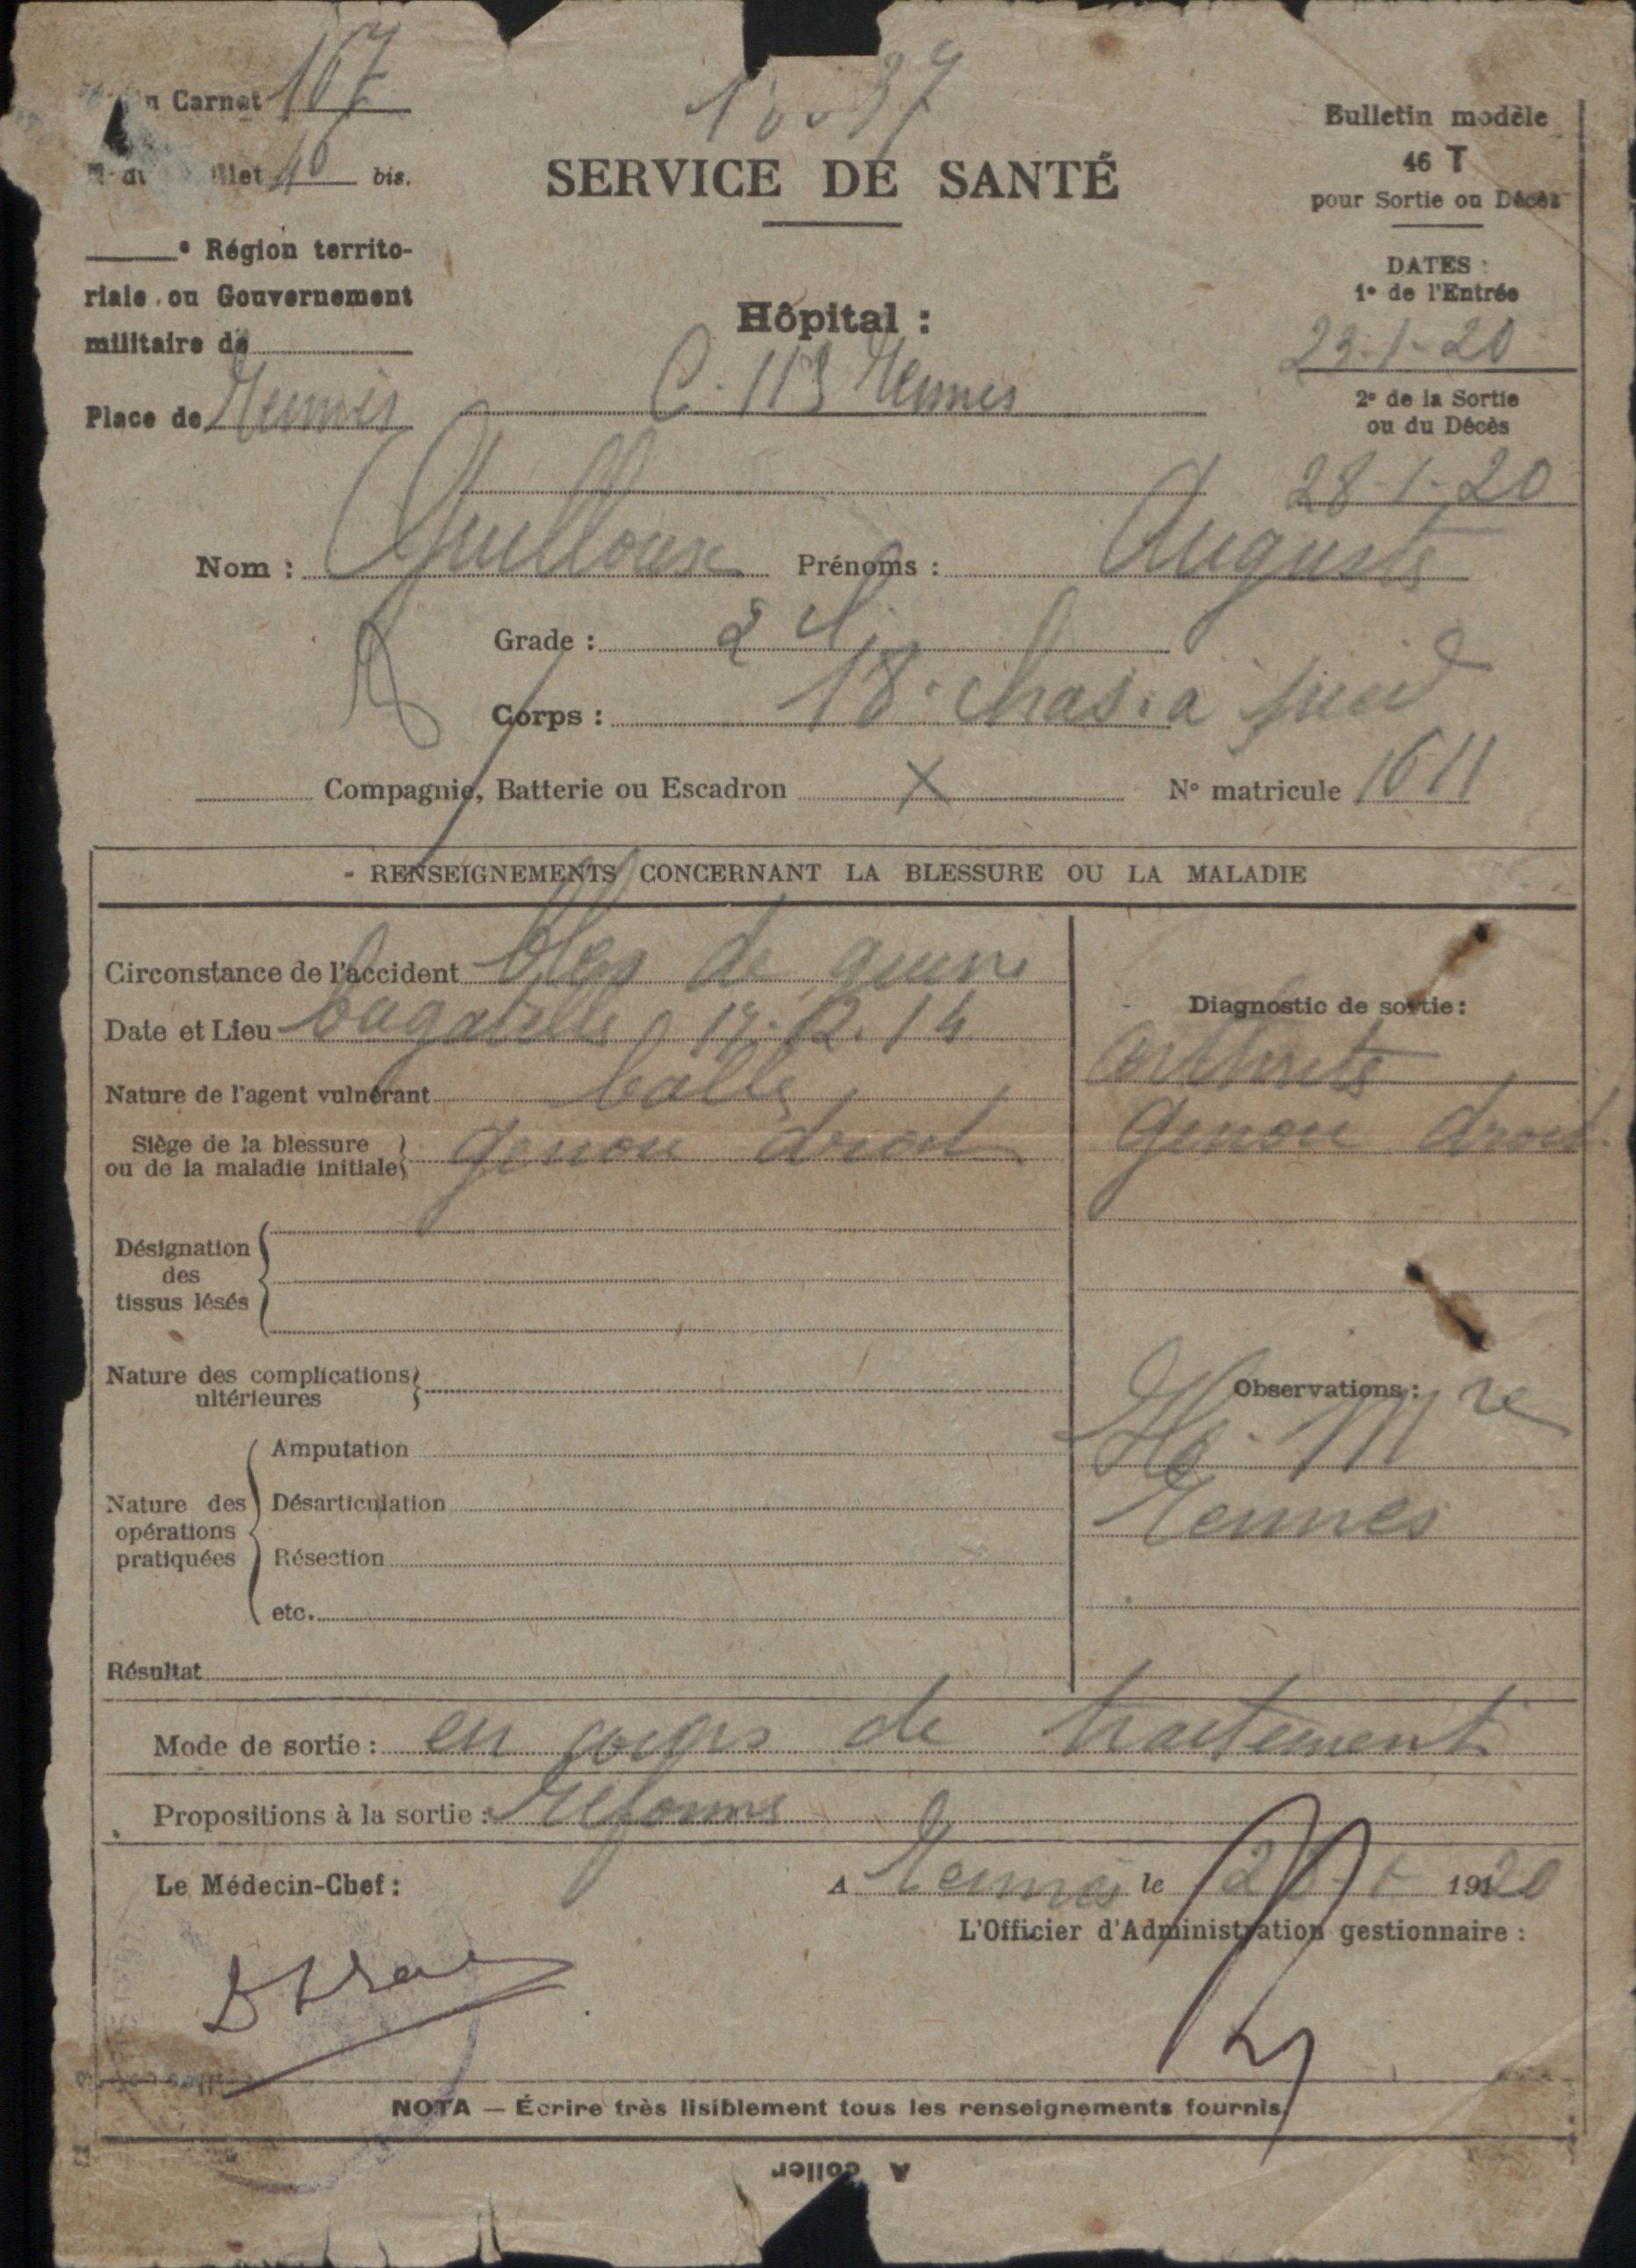 Carnet 167
10 bis.
SERVICE DE SANTÉ
Bulletin modèle
46 T
pour Sortie ou Décès
e Région territo-
riale ou Gouvernement
militaire de
Place de Rennes
Hôpital :
C. 113 Rennes
DATES :
1° de l'Entrée
23-1-20
2° de la Sortie
ou du Décès
28-1-20
Nom : Guilloux Prénoms : Auguste
Grade : 2
Corps : 18e chas. a pied
Compagnie, Batterie ou Escadron X N° matricule 1611
RENSEIGNEMENTS CONCERNANT LA BLESSURE OU LA MALADIE
Circonstance de l'accident bles de guerre
Date et Lieu bagatelle 17.12.14
Nature de l'agent vulnérant balle
Siège de la blessure
ou de la maladie initiale genou droit
Désignation
des
tissus lésés
Nature des complications
ultérieures
Nature des
opérations
pratiquées
Amputation
Désarticulation
Résection
etc.
Résultat
Diagnostic de sortie :
Arthrite
Genou droit
Observations :
Ho. Mre
Rennes
Mode de sortie : en cours de traitement
Propositions à la sortie : réforme
Le Médecin-Chef :
A Rennes le 28-1- 1920
L'Officier d'Administration gestionnaire :
NOTA — Écrire très lisiblement tous les renseignements fournis.
A coller